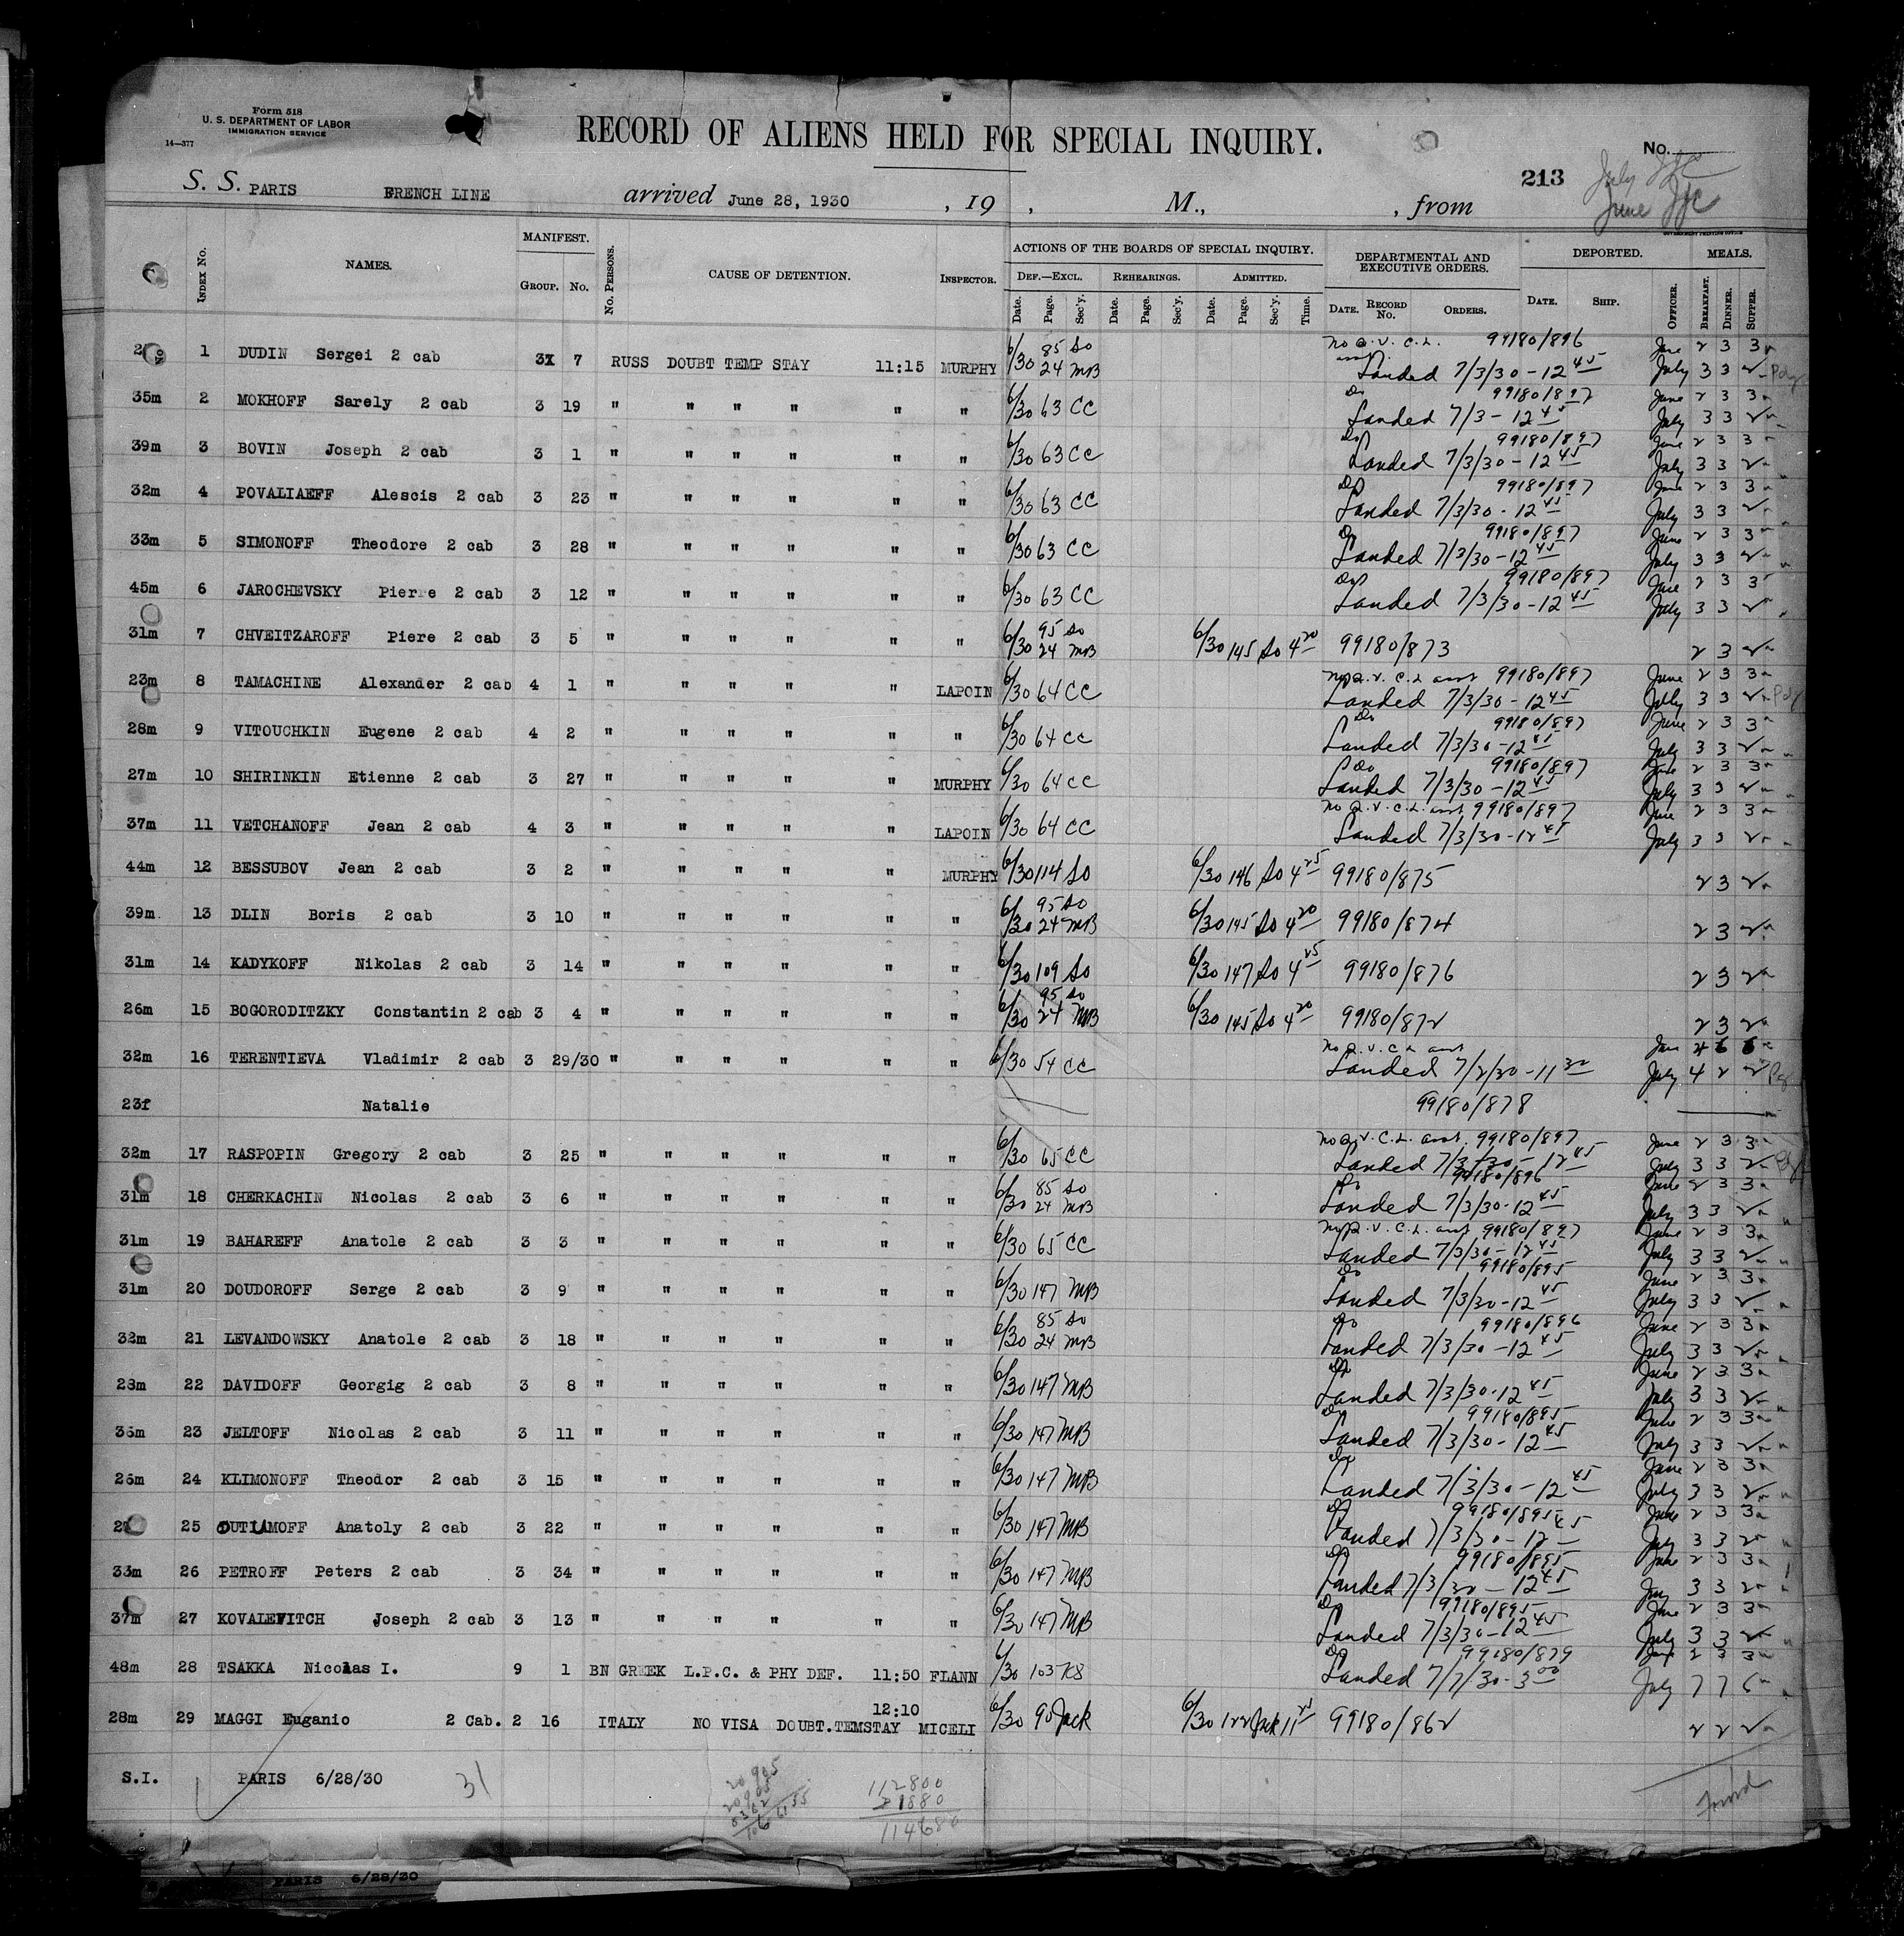 Form 518
U. S. DEPARTMENT OF LABOR
IMMIGRATION SERVICE
14—377
RECORD OF ALIENS HELD FOR SPECIAL INQUIRY.
No.
213
July JJC
June JJC
S. S. PARIS FRENCH LINE arrived June 28, 1930 , 19 , M., , from
GOVERNMENT PRINTING OFFICE
INDEX No. NAMES. MANIFEST. GROUP. No. No. PERSONS. CAUSE OF DETENTION. INSPECTOR. ACTIONS OF THE BOARDS OF SPECIAL INQUIRY. DEF.—EXCL. Date. Page. Sec'y. REHEARINGS. Date. Page. Sec'y. ADMITTED. Date. Page. Sec'y. Time. DEPARTMENTAL AND EXECUTIVE ORDERS. DATE. RECORD No. ORDERS. DEPORTED. DATE. SHIP. OFFICER. MEALS. BREAKFAST. DINNER. SUPPER.
1 DUDIN Sergei 2 cab 3X 7 RUSS DOUBT TEMP STAY 11:15 MURPHY 6/30 85 So 24 MB No Q.V.C.L. 99180/896 June 2 3 3
Landed 7/3/30 - 12 45 July 3 3 2
35m 2 MOKHOFF Sarely 2 cab 3 19 " " " " " " 6/30 63 CC Do 99180/897 June 2 3 3
Landed 7/3 - 12 45 July 3 3 2
39m 3 BOVIN Joseph 2 cab 3 1 " " " " " " 6/30 63 CC Do 99180/897 June 2 3 3
Landed 7/3/30 - 12 45 July 3 3 2
32m 4 POVALIAEFF Alescis 2 cab 3 23 " " " " " " 6/30 63 CC Do 99180/897 June 2 3 3
Landed 7/3/30 - 12 45 July 3 3 2
33m 5 SIMONOFF Theodore 2 cab 3 28 " " " " " " 6/30 63 CC Do 99180/897 June 2 3 3
Landed 7/3/30 - 12 45 July 3 3 2
45m 6 JAROCHEVSKY Pierre 2 cab 3 12 " " " " " " 6/30 63 CC Do 99180/897 June 2 3 3
Landed 7/3/30 - 12 45 July 3 3 2
31m 7 CHVEITZAROFF Piere 2 cab 3 5 " " " " " " 6/30 95 So 24 MB 6/30 145 So 4 20 99180/873 2 3 2
23m 8 TAMACHINE Alexander 2 cab 4 1 " " " " " LAPOIN 6/30 64 CC No Q.V.C.L. asst 99180/897 June 2 3 3
Landed 7/3/30 - 12 45 July 3 3 2
28m 9 VITOUCHKIN Eugene 2 cab 4 2 " " " " " " 6/30 64 CC Do 99180/897 June 2 3 3
Landed 7/3/30 - 12 45 July 3 3 2
27m 10 SHIRINKIN Etienne 2 cab 3 27 " " " " " MURPHY 6/30 64 CC Do 99180/897 June 2 3 3
Landed 7/3/30 - 12 45 July 3 3 2
37m 11 VETCHANOFF Jean 2 cab 4 3 " " " " " LAPOIN 6/30 64 CC No Q.V.C.L. asst 99180/897 June 2 3 3
Landed 7/3/30 - 12 45 July 3 3 2
44m 12 BESSUBOV Jean 2 cab 3 2 " " " " " MURPHY 6/30 114 So 6/30 146 So 4 25 99180/875 2 3 2
39m 13 DLIN Boris 2 cab 3 10 " " " " " " 6/30 95 So 24 MB 6/30 145 So 4 20 99180/874 2 3 2
31m 14 KADYKOFF Nikolas 2 cab 3 14 " " " " " " 6/30 109 So 6/30 147 So 4 25 99180/876 2 3 2
26m 15 BOGORODITZKY Constantin 2 cab 3 4 " " " " " " 6/30 95 So 24 MB 6/30 145 So 4 20 99180/872 2 3 2
32m 16 TERENTIEVA Vladimir 2 cab 3 29/30 " " " " " " 6/30 54 CC No Q.V.C.L. asst June 4 6 6
Landed 7/2/30 - 11 30 July 4 2 2
23f Natalie 99180/878
32m 17 RASPOPIN Gregory 2 cab 3 25 " " " " " " 6/30 65 CC No Q.V.C.L. asst. 99180/897 June 2 3 3
Landed 7/3/30 - 12 45 July 3 3 2
31m 18 CHERKACHIN Nicolas 2 cab 3 6 " " " " " " 6/30 85 So 24 MB Do 99180/896 June 2 3 3
Landed 7/3/30 - 12 45 July 3 3 2
31m 19 BAHAREFF Anatole 2 cab 3 3 " " " " " " 6/30 65 CC No Q.V.C.L. asst 99180/897 June 2 3 3
Landed 7/3/30 - 12 45 July 3 3 2
31m 20 DOUDOROFF Serge 2 cab 3 9 " " " " " " 6/30 147 MB Do 99180/895 June 2 3 3
Landed 7/3/30 - 12 45 July 3 3 2
32m 21 LEVANDOWSKY Anatole 2 cab 3 18 " " " " " " 6/30 85 So 24 MB Do 99180/896 June 2 3 3
Landed 7/3/30 - 12 45 July 3 3 2
28m 22 DAVIDOFF Georgig 2 cab 3 8 " " " " " " 6/30 147 MB Do June 2 3 3
Landed 7/3/30 - 12 45 July 3 3 2
36m 23 JELTOFF Nicolas 2 cab 3 11 " " " " " " 6/30 147 MB Do 99180/895 June 2 3 3
Landed 7/3/30 - 12 45 July 3 3 2
26m 24 KLIMONOFF Theodor 2 cab 3 15 " " " " " " 6/30 147 MB Do June 2 3 3
Landed 7/3/30 - 12 45 July 3 3 2
25 OUTIAMOFF Anatoly 2 cab 3 22 " " " " " " 6/30 147 MB Do 99180/895 June 2 3 3
Landed 7/3/30 - 12 45 July 3 3 2
33m 26 PETROFF Peters 2 cab 3 34 " " " " " " 6/30 147 MB Do 99180/895 June 2 3 3
Landed 7/3/30 - 12 45 July 3 3 2
37m 27 KOVALEVITCH Joseph 2 cab 3 13 " " " " " " 6/30 147 MB Do 99180/895 June 2 3 3
Landed 7/3/30 - 12 45 July 3 3 2
48m 28 TSAKKA Nicolas I. 9 1 BN GREEK L.P.C. & PHY DEF. 11:50 FLANN 6/30 103 KS Do 99180/879 June 2 3 3
Landed 7/7/30 - 3 00 July 7 7 6
28m 29 MAGGI Euganio 2 Cab. 2 16 ITALY NO VISA DOUBT.TEMSTAY 12:10 MICELI 6/30 90 Jack 6/30 122 Jack 11 99180/862 2 2 2
S.I. PARIS 6/28/30 31
112800
1880
114680
PARIS 6/28/30